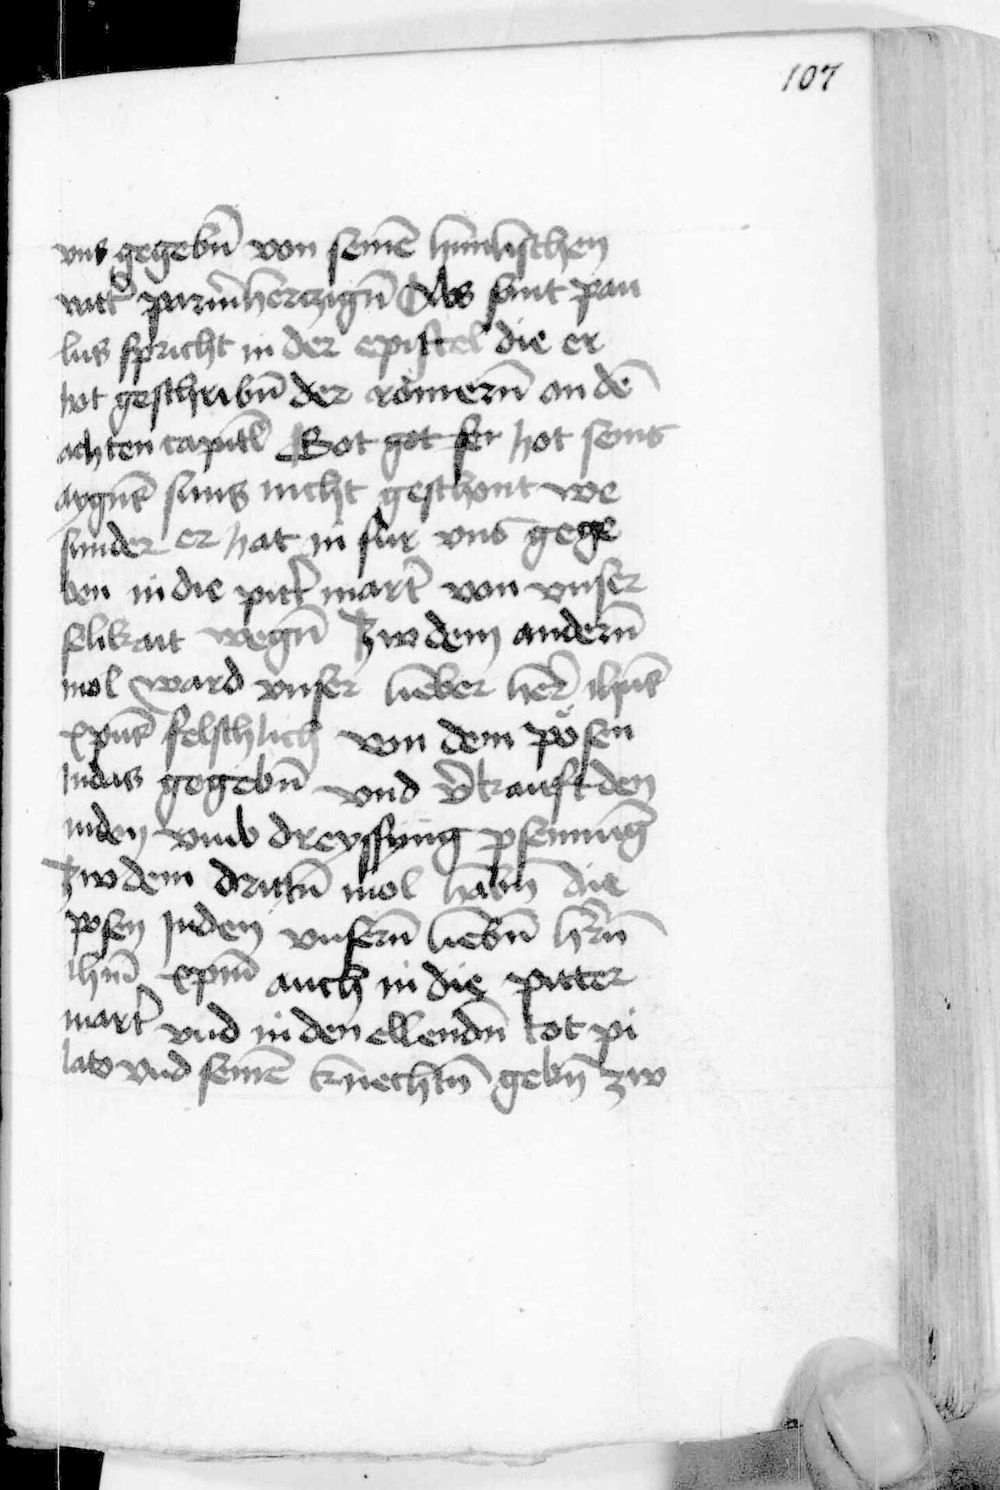 107
vns gegebn̄ von seinē himlischen
vatt͛ parmhertzign̄ Als sant pau
lus spricht in der epistel die er
hot geschribn̄ der römern̄ an dē
achten capitl Got got hot seins
aygns suns nicht geschont
sunder er hat in für vns gege
ben in die pitt͛ mart͛ von vnser
selikait wegn̄ Zw dem andern̄
mol ward vnser lieber her͛ ihūs
xpūs felschlich von dem pösen
iudas gegebn̄ vnd v͛kauft den
iuden vmb dreyssyng pfenning
Zw dem drittn̄ mol habn̄ die
posen Juden vnsern̄ liebn̄ hrn̄
ihm̄ xpm̄ auch in die pitter
mart͛ vnd in den ellendn̄ tot pi
lato vnd seinē knechtn̄ gebn̄ zw